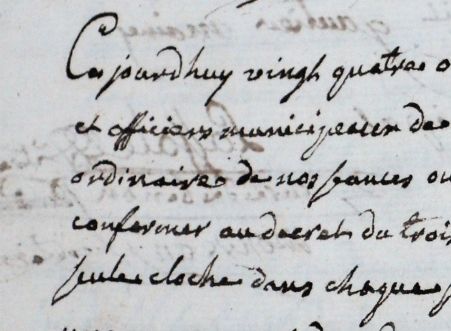 Cejourdhuy vingt quatre o
et officiers municipeaux de
ordinaire de nos seances ou
conformer au decret du trois
seule cloche dans chaque